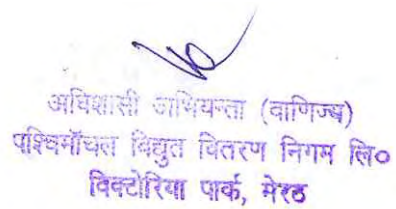 अधिशासी अभियन्ता (वाणिज्य)
पश्चिमॉंचल विद्युत वितरण निगम लि०
विक्टोरिया पार्क, मेरठ